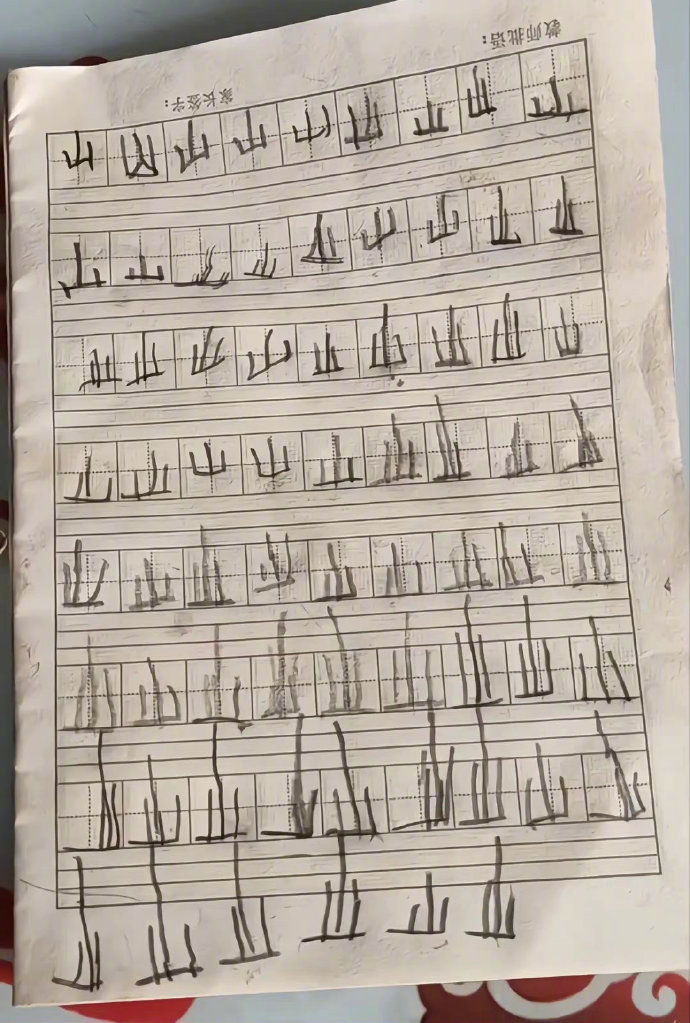 教师批语：
家长签字：
山山山山山山山山山
山山山山山山山山山
山山山山山山山山山
山山山山山山山山山
山山山山山山山山山
山山山山山山山山山
山山山山山山山山山
山山山山山山